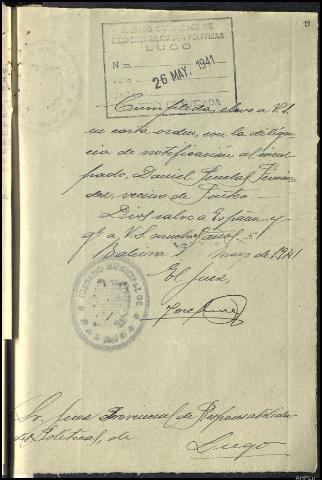 13
JUZGADO INSTRUCTOR DE
RESPONSABILIDADES POLITICAS
LUGO
Núm.
Folio
26 MAY. 1941
ENTRADA
Cumplida, elevo a V.S.
su carta orden, con la diligen-
cia de notificación al incul-
pado, Daniel Fernán-
dez, vecino de
Dios salve a España y
gᵉ a V.S. muchos años.
Baleira Mayo de 1941
El Juez,
José
JUZGADO MUNICIPAL DE
Sr. Juez Provincial de Responsabilida-
des Políticas, de
Lugo
AHPLu